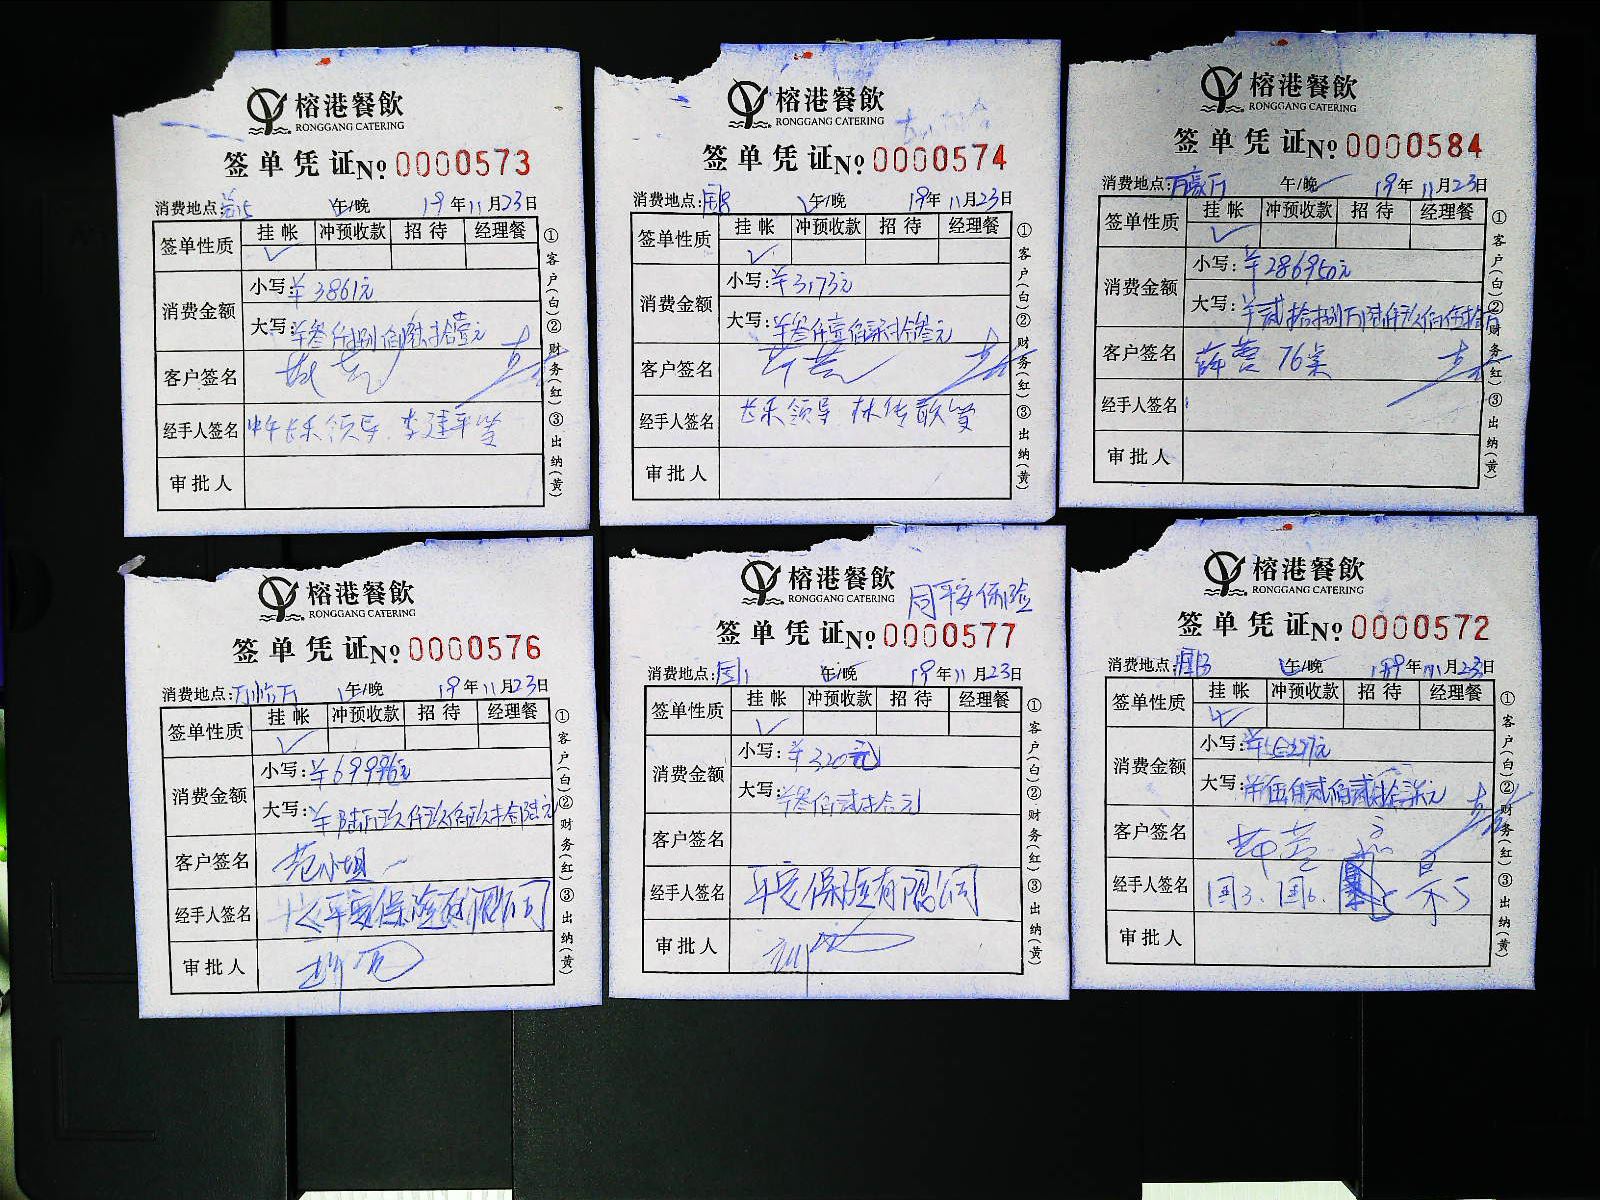 榕港餐飲
RONGGANG CATERING
签单凭证 № 0000573
消费地点: 午/晚 19年11月23日
签单性质 挂帐 冲预收款 招待 经理餐
✓
消费金额 小写: ¥3861元
大写: ¥叁仟捌佰陆拾壹元
客户签名
经手人签名 中午长乐领导 李建平等
审批人
①客户(白)②财务(红)③出纳(黄)
榕港餐飲
RONGGANG CATERING
签单凭证 № 0000574
消费地点: 午/晚 19年11月23日
签单性质 挂帐 冲预收款 招待 经理餐
✓
消费金额 小写: ¥3173元
大写: ¥叁仟壹佰柒拾叁元
客户签名 薛芸
经手人签名 长乐领导 林传敢等
审批人
①客户(白)②财务(红)③出纳(黄)
榕港餐飲
RONGGANG CATERING
签单凭证 № 0000584
消费地点: 万豪厅 午/晚 19年11月23日
签单性质 挂帐 冲预收款 招待 经理餐
✓
消费金额 小写: ¥286950元
大写: ¥贰拾捌万陆仟玖佰伍拾元
客户签名 薛芸 76桌
经手人签名
审批人
①客户(白)②财务(红)③出纳(黄)
榕港餐飲
RONGGANG CATERING
签单凭证 № 0000576
消费地点: 午/晚 19年11月23日
签单性质 挂帐 冲预收款 招待 经理餐
✓
消费金额 小写: ¥69996元
大写: ¥陆万玖仟玖佰玖拾陆元
客户签名
经手人签名 平安保险有限公司
审批人
①客户(白)②财务(红)③出纳(黄)
榕港餐飲
RONGGANG CATERING
同平安保险
签单凭证 № 0000577
消费地点: 国1 午/晚 19年11月23日
签单性质 挂帐 冲预收款 招待 经理餐
✓
消费金额 小写: ¥320元
大写: ¥叁佰贰拾元
客户签名
经手人签名 平安保险有限公司
审批人
①客户(白)②财务(红)③出纳(黄)
榕港餐飲
RONGGANG CATERING
签单凭证 № 0000572
消费地点: 午/晚 19年11月23日
签单性质 挂帐 冲预收款 招待 经理餐
消费金额 小写:
大写:
客户签名 薛芸
经手人签名 国3、国6、
审批人
①客户(白)②财务(红)③出纳(黄)